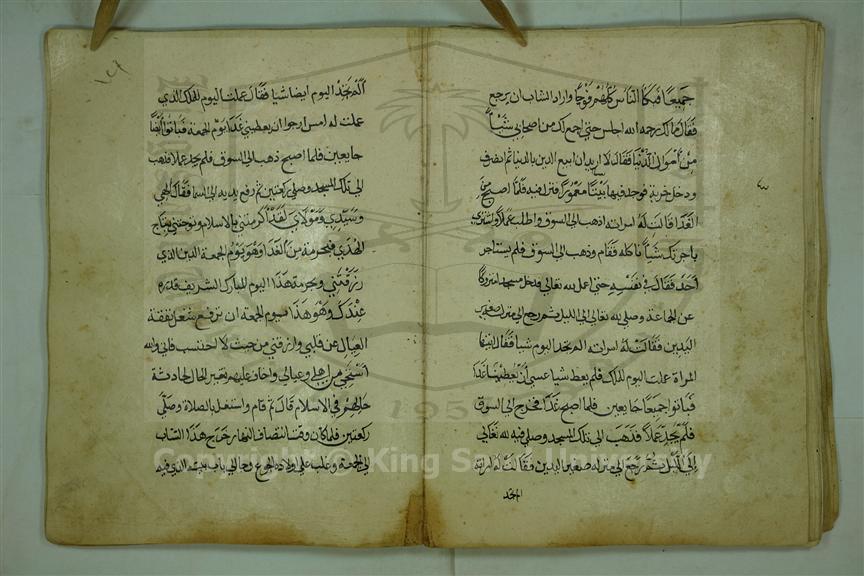 جميعا فبكا الناس كلهم فرحا واراد الشاب ان يرجع
فقال مالك رحمه الله اجلس حتي اجمع لك من اصحابي شيأ
من أموال الدنيا فقال لا اريد ان ابيع الدين بالدنيا ثم انصرف
ودخل خربة فوجد فيها بيتا معمورا فنزل فيه فلما اصبح من
الغد قالت له امراته اذهب الي السوق واطلب عملا واشتري
باجرتك شيأ ناكله فقام وذهب الي السوق فلم يستاجره
احد فقال في نفسه حتي اعمل لله تعالي فدخل مسجدا متروكا
عن الجماعة وصلي لله تعالي الي الليل ثم رجع الي منزله صفر
اليدين فقالت له امراته الم تجد اليوم شيا فقال ايتها
المراة عملت اليوم للملك فلم يعط شيا عسي أن يعطينا غدا
فباتوا جميعا جايعين فلما اصبح غدا فخرج الي السوق
فلم يجد عملا فذهب الي ذلك المسجد وصلي فيه لله تعالي
إلي الليل ثم رجع الي منزله صفر اليدين فقالت له امراته
الم تجد
الم تجد اليوم ايضا شيا فقال عملت اليوم للملك الذي
عملت له امس ارجو ان يعطيني غدا يوم الجمعة فباتوا أيضا
جايعين فلما اصبح ذهب الي السوق فلم يجد عملا فذهب
الي ذلك المسجد وصلي ركعتين ثم رفع يديه الي السما فقال الهي
وسيدي ومولاي لقد أكرمتني بالاسلام وتوجتني بتاج
الهدي فبحرمة من الغد وهو يوم الجمعة الدين الذي
رزقتني وبحرمة هذا اليوم المبارك الشريف قدره
عندك وهو هذا يوم الجمعة ان ترفع شغل نفقة
العيال عن قلبي وارزقني من حيث لا احتسب فاني والله
أستحي من اهلي وعيالي واخاف عليهم تغيير الحال لحداثة
حالهم في الاسلام قال ثم قام واشتغل بالصلاة وصلي
ركعتين فلما كان وقت انتصاف النهار خرج هذا الشاب
الي الجمعة وغلب علي اولاده الجوع وجا الي باب بيته الذي فيه
Copyright © King Saud University
1957